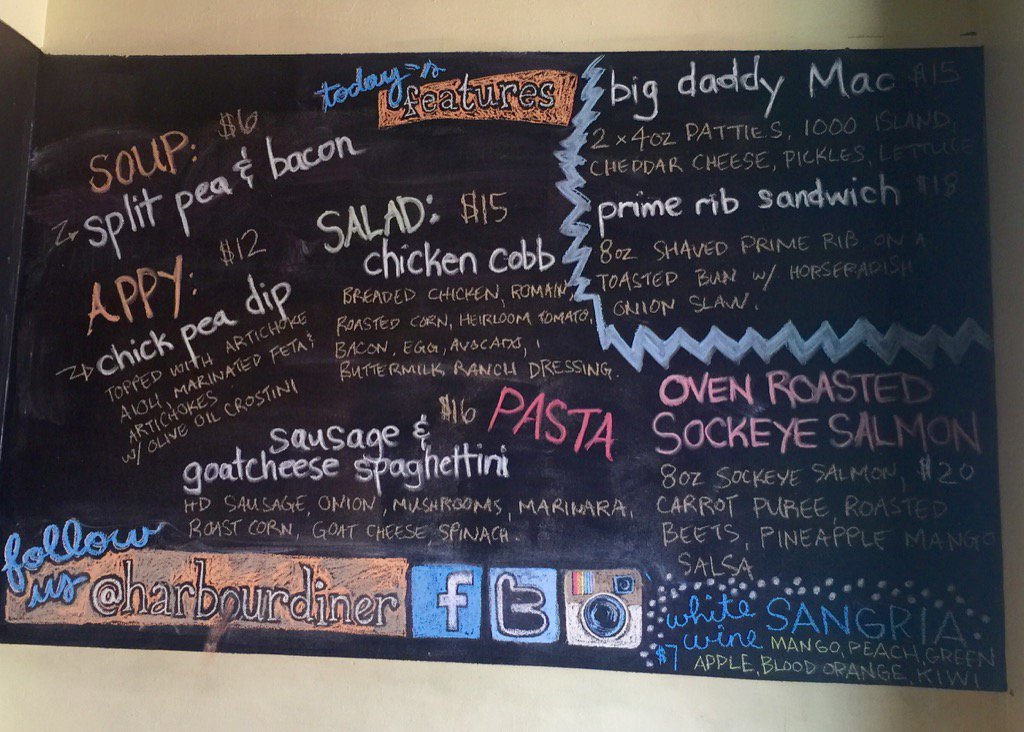 today's
features
SOUP: $6
split pea & bacon
APPY: $12
chick pea dip
TOPPED WITH ARTICHOKE
MARINATED FETA &
ARTICHOKES
W/ OLIVE OIL CROSTINI
SALAD: $15
chicken cobb
BREADED CHICKEN, ROMAIN,
ROASTED CORN, HEIRLOOM TOMATO,
BACON, EGG, AVOCADO,
BUTTERMILK RANCH DRESSING.
$16 PASTA
sausage &
goatcheese spaghettini
HD SAUSAGE, ONION, MUSHROOMS, MARINARA,
ROAST CORN, GOAT CHEESE, SPINACH.
big daddy Mac $15
2 x 4oz PATTIES, 1000 ISLAND,
CHEDDAR CHEESE, PICKLES, LETTUCE
prime rib sandwich $18
8oz SHAVED PRIME RIB ON A
TOASTED BUN W/ HORSERADISH
ONION SLAW.
OVEN ROASTED
SOCKEYE SALMON
8oz SOCKEYE SALMON, $20
CARROT PUREE, ROASTED
BEETS, PINEAPPLE MANGO
SALSA
follow
us @harbourdiner
f t
white SANGRIA
wine MANGO, PEACH, GREEN
$7 APPLE, BLOOD ORANGE, KIWI